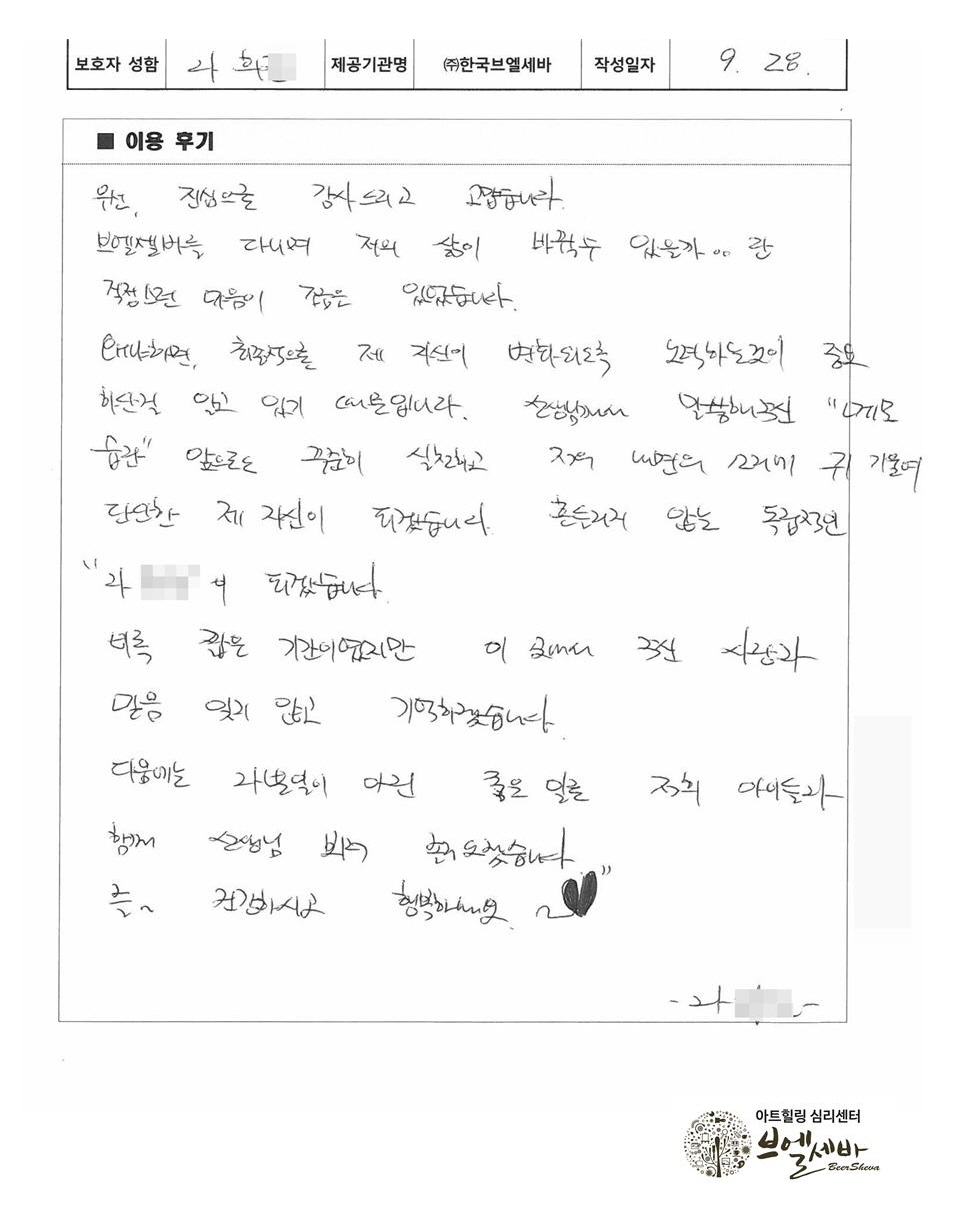 보호자 성함 라 희 제공기관명 ㈜한국브엘세바 작성일자 9. 28.
■ 이용 후기
우선, 진심으로 감사드리고 고맙습니다.
브엘세바를 다니며 저의 삶이 바뀔수 있을까.. 란
걱정스런 마음이 있었습니다.
왜냐하면, 최종적으로 제 자신이 변화되도록 노력하는것이 중요
하단걸 알고 있기 때문입니다. 선생님께서 말씀해주신 "메모
습관" 앞으로도 꾸준히 실천하고 저의 내면의 소리에 귀 기울여
단단한 제 자신이 되겠습니다. 흔들리지 않는 독립적인
"라 이 되겠습니다.
비록 짧은 기간이였지만 이 곳에서 주신 사랑과
믿음 잊지 않고 기억하겠습니다.
다음에는 좋은 일로 저희 아이들과
함께 선생님 뵈러 오겠습니다
늘~ 건강하시고 행복하세요 ~♥"
- 라 -
아트힐링 심리센터
브엘세바
BeerSheva